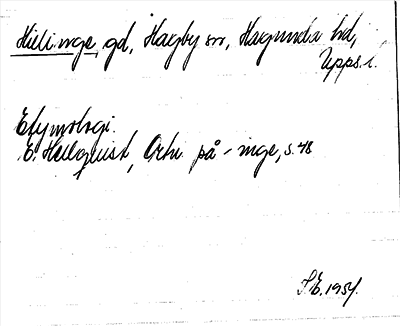 Hisli.nge, gd, Hagby sn, Hagunda hd,
Upps. l.
Etymologi.
E. Hellquist, Ortn. på -inge, s. 48
S.E. 1954.